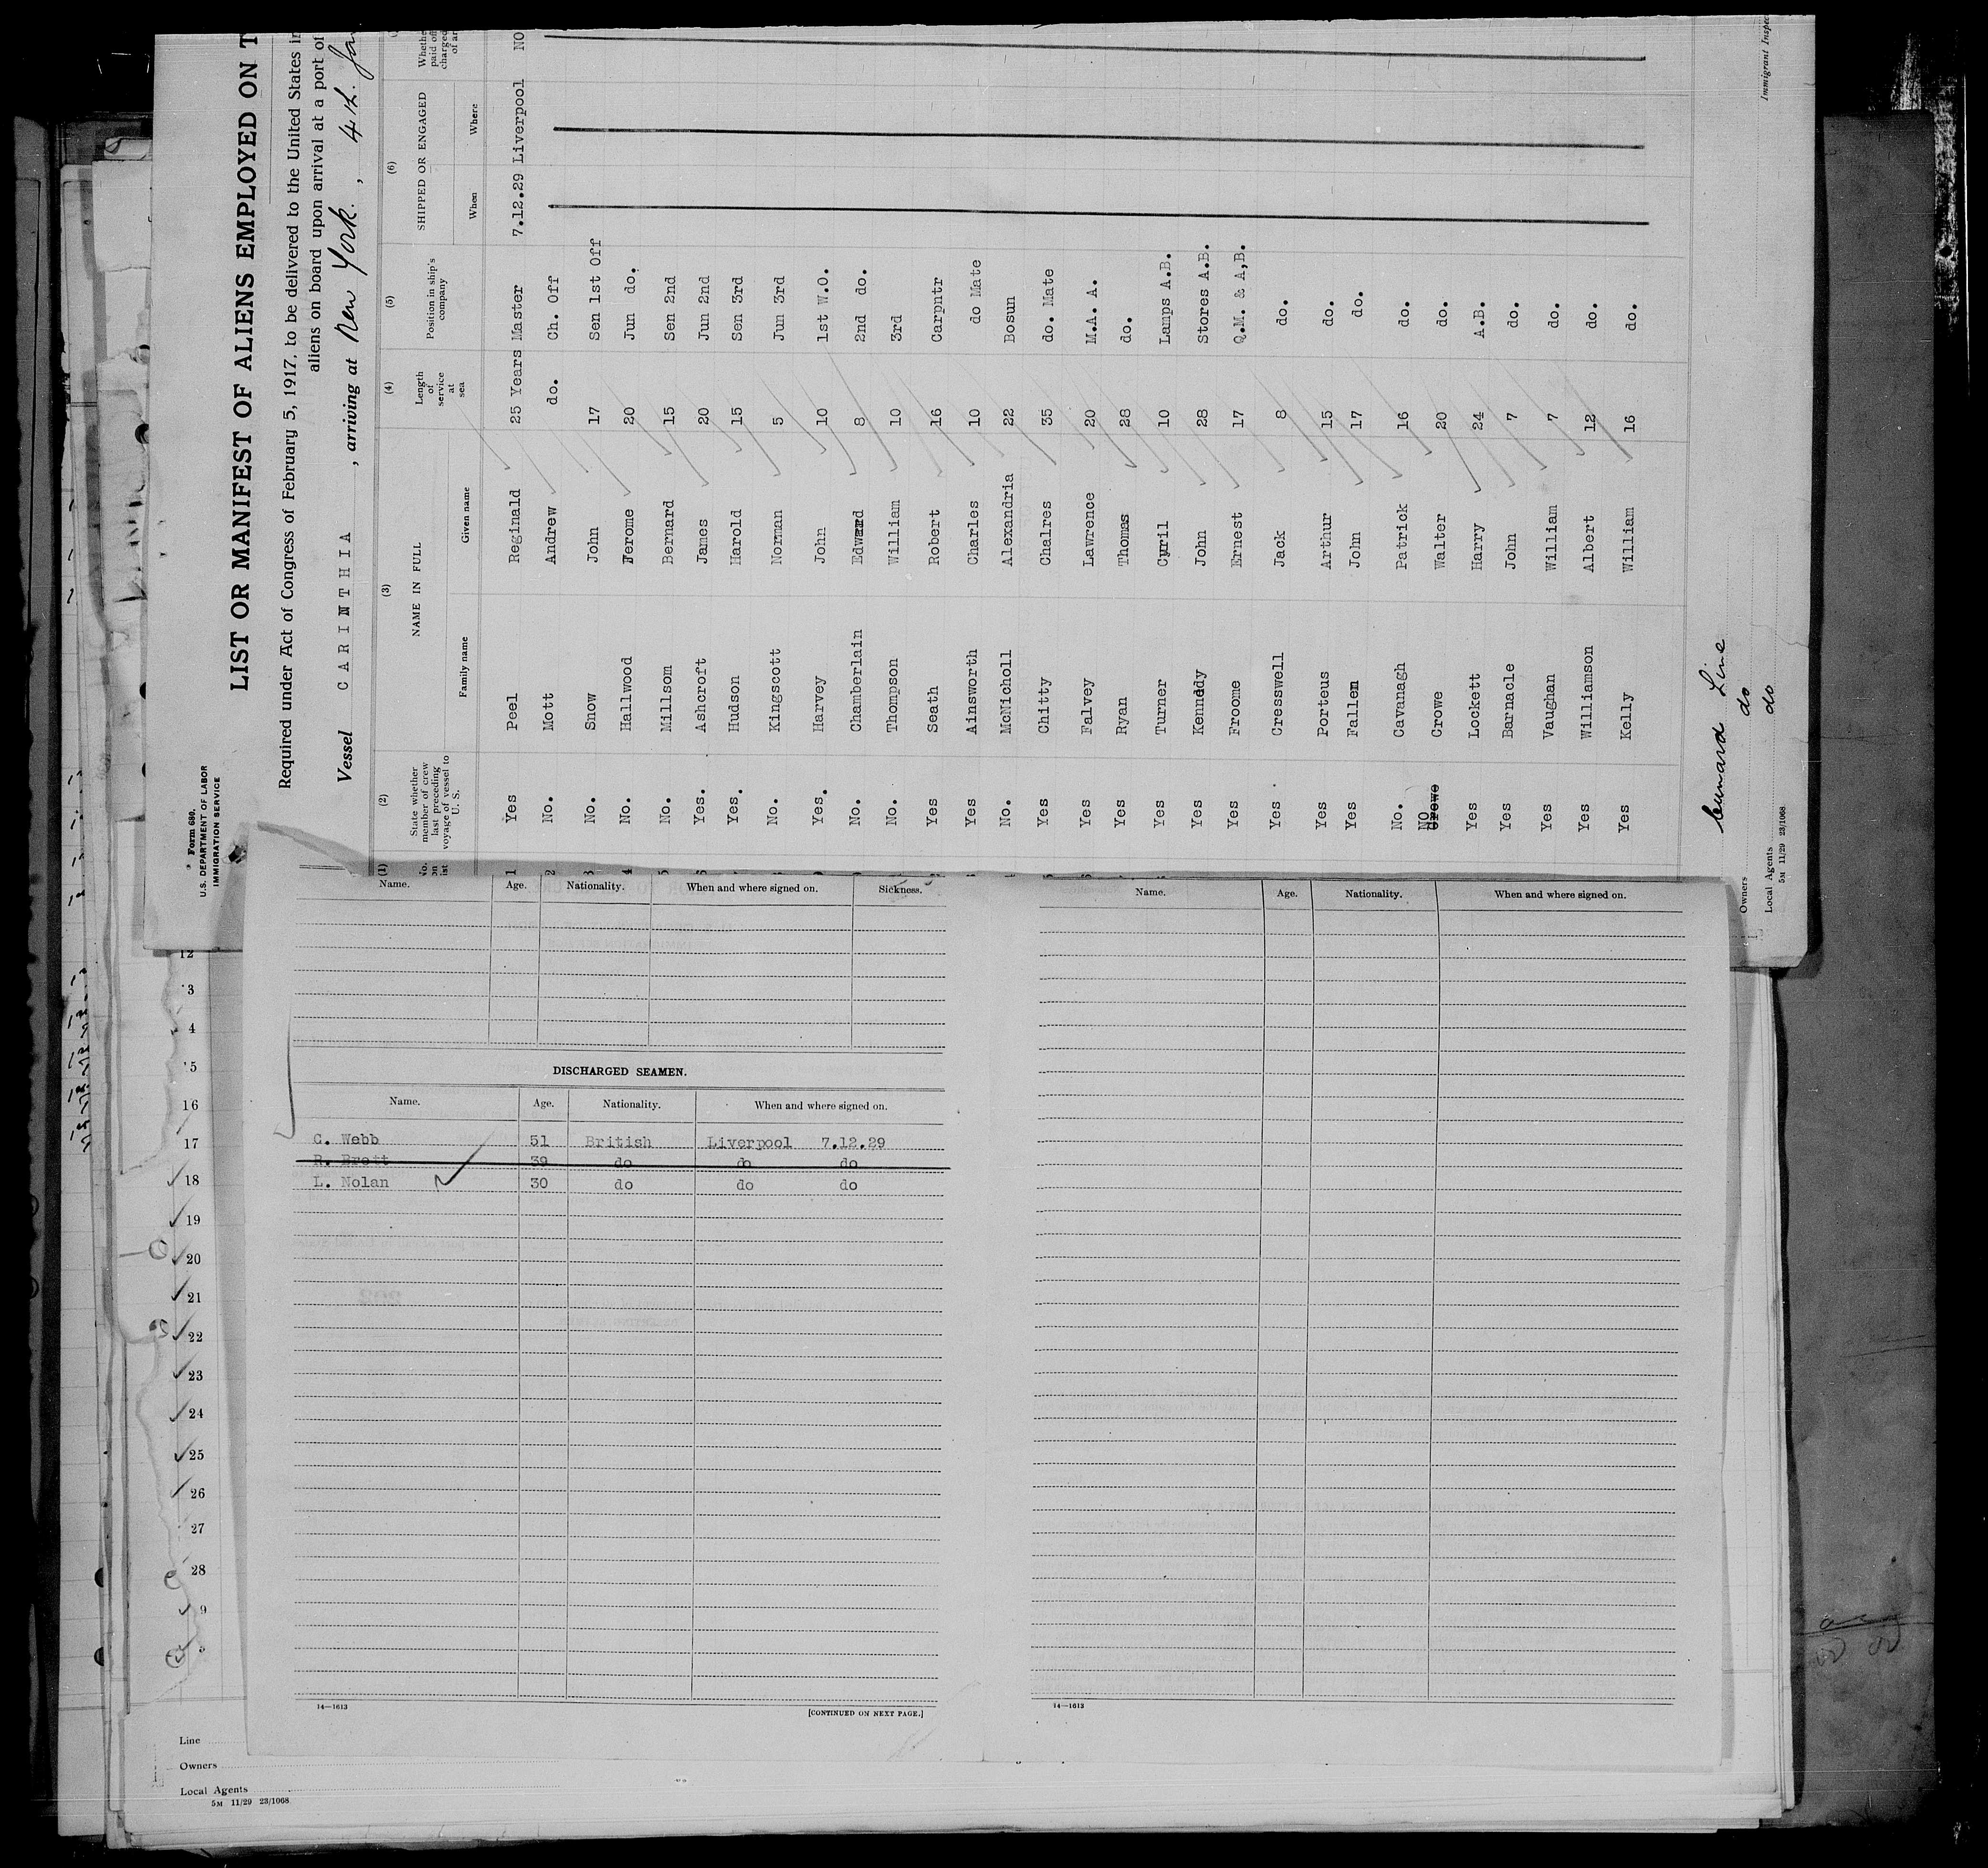 Form 680.
U.S. DEPARTMENT OF LABOR
IMMIGRATION SERVICE
LIST OR MANIFEST OF ALIENS EMPLOYED ON T
Required under Act of Congress of February 5, 1917, to be delivered to the United States in
aliens on board upon arrival at a port of
Vessel CARINTHIA, arriving at New York., 4th. Jan
(1) (2) (3) (4) (5) (6)
No. on list
State whether member of crew last preceding voyage of vessel to U. S.
NAME IN FULL
Family name Given name
Length of service at sea
Position in ship's company
SHIPPED OR ENGAGED
When Where
1 Yes Peel Reginald 25 Years Master 7.12.29 Liverpool NO
2 No. Mott Andrew do. Ch. Off
3 No. Snow John 17 Sen 1st Off
4 No. Hallwood Jerome 20 Jun do.
5 No. Millsom Bernard 15 Sen 2nd
Yes. Ashcroft James 20 Jun 2nd
Yes. Hudson Harold 15 Sen 3rd
No. Kingscott Norman 5 Jun 3rd
Yes. Harvey John 10 1st W.O.
No. Chamberlain Edward 8 2nd do.
No. Thompson William 10 3rd
Yes Seath Robert 16 Carpntr
Yes Ainsworth Charles 10 do Mate
No. McNicholl Alexandria 22 Bosun
Yes Chitty Chalres 35 do. Mate
Yes Falvey Lawrence 20 M.A. A.
Yes Ryan Thomas 28 do.
Yes Turner Cyril 10 Lamps A.B.
Yes Kennedy John 28 Stores A.B.
Yes Froome Ernest 17 Q.M. & A,B.
Yes Cresswell Jack 8 do.
Yes Porteus Arthur 15 do.
Yes Fallen John 17 do.
No. Cavanagh Patrick 16 do.
NO Crowe Crowe Walter 20 do.
Yes Lockett Harry 24 A.B.
Yes Barnacle John 7 do.
Yes Vaughan William 7 do.
Yes Williamson Albert 12 do.
Yes Kelly William 16 do.
Cunard Line
Owners do
Local Agents do
5M 11/29 23/1068
Name. Age. Nationality. When and where signed on. Sickness.
DISCHARGED SEAMEN.
Name. Age. Nationality. When and where signed on.
C. Webb 51 British Liverpool 7.12.29
R. Brett 39 do do do
L. Nolan 30 do do do
14—1613 [CONTINUED ON NEXT PAGE.]
Name. Age. Nationality. When and where signed on.
14—1613
12
3
4
5
16
17
18
19
20
21
22
23
24
25
26
27
28
9
Line
Owners
Local Agents
5M 11/29 23/1068